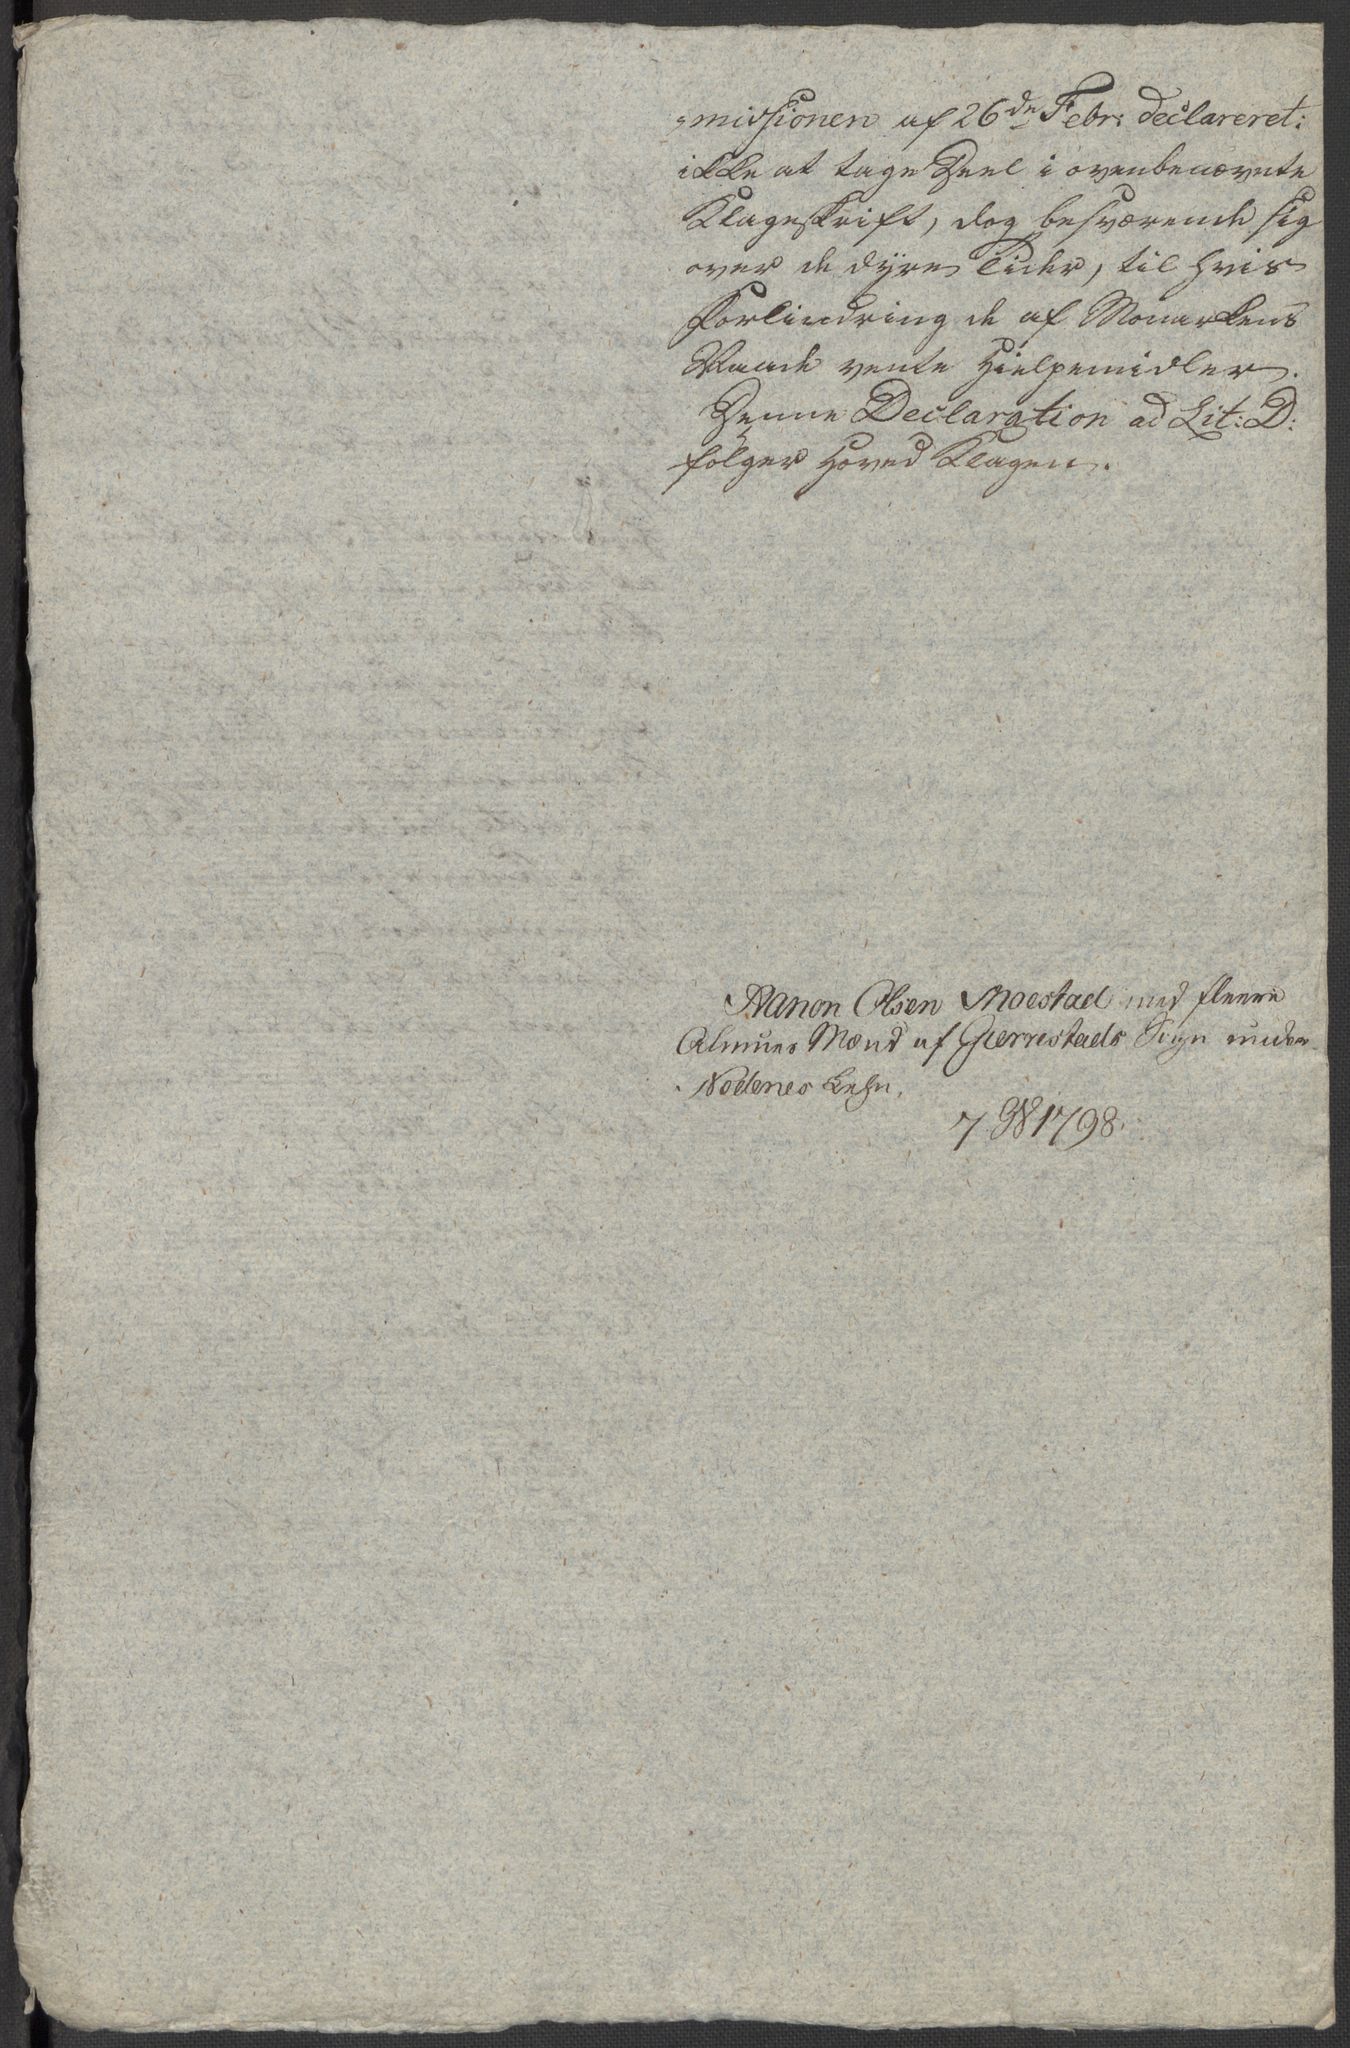 =missionen af 26de Febr: declareret:
ikke at tage Deel i ovenbenævnte
Klageskrift, dog besværende sig
over de dyre Tider, til hvis
Forlindring de af Monarkens
Naade vente Hielpemidler.
Denne Declaration ad Lit: D:
følger Hoved Klagen.
Aanon Olsen Moestad med fleere
Almues Mænd af Gierrestads Sogn under
Nedenes Lehn.
7 1798.